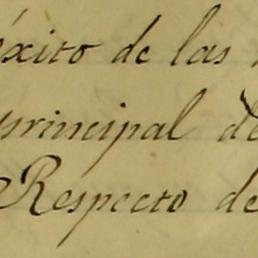 éxito de las
principal de
Respecto de